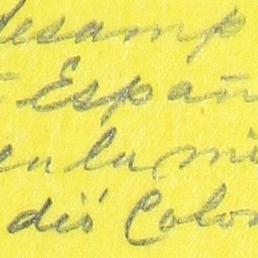 desamp
España
en la mi
dió Colon